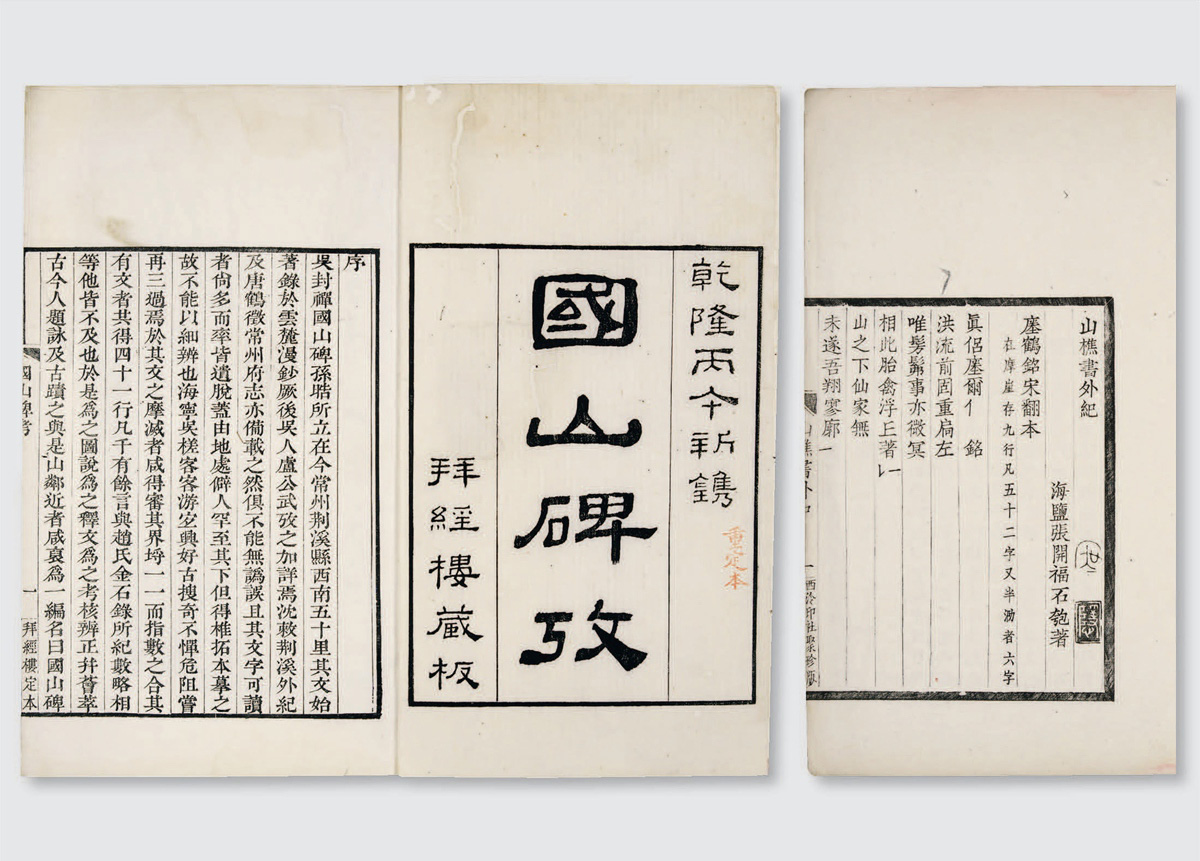 山樵書外紀
海鹽張開福石匏著
瘞鶴銘宋翻本
在摩崖存九行凡五十二字又半泐者六字
眞侶瘞爾亻 銘
洪流前固重扃左
唯髣髴事亦微冥
相此胎禽浮丘著
山之下仙家無
未遂吾翔寥廓
山樵書外紀 一 西泠印社聚珍版
乾隆丙午新鐫
重定本
國山碑攷
拜經樓藏板
序
吳封禪國山碑孫晧所立在今常州荆溪縣西南五十里其文始
著錄於雲麓漫鈔厥後吳人盧公武攷之加詳焉沈敕荆溪外紀
及唐鶴徵常州府志亦備載之然俱不能無譌誤且其文字可讀
者尚多而率皆遺脫蓋由地處僻人罕至其下但得椎拓本摹之
故不能以細辨也海寧吳槎客客游宜興好古搜奇不憚危阻嘗
再三過焉於其文之摩滅者咸得審其界埒一一而指數之合其
有文者共得四十一行凡千有餘言與趙氏金石錄所紀數略相
等他皆不及也於是爲之圖說爲之釋文爲之考核辨正幷薈萃
古今人題詠及古蹟之與是山鄰近者咸裒爲一編名曰國山碑
國山碑考 一 拜經樓定本